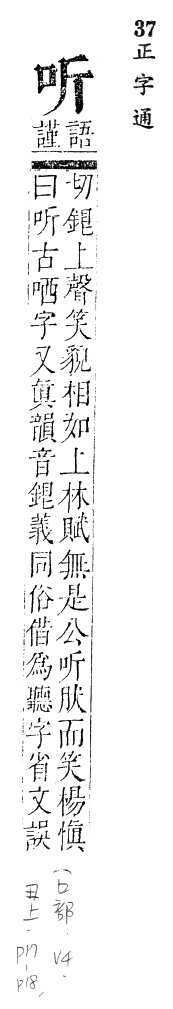 37正字通
听
語謹
切銀上聲笑貌相如上林賦無是公听肰而笑楊愼
曰听古哂字又眞韻音銀義同俗借為聽字省文誤
（口部．V4．
丑上．P17-P18